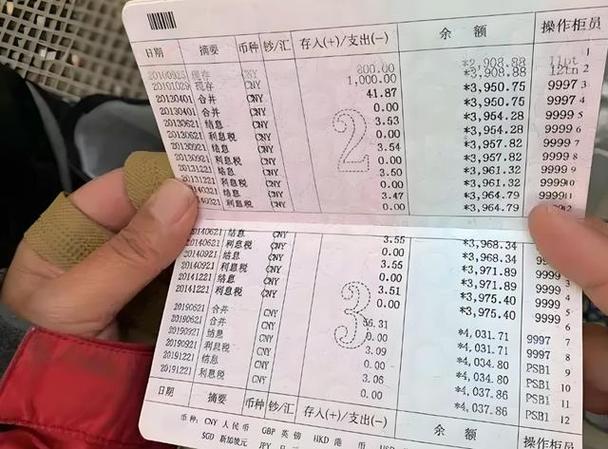 日期 摘要 币种 钞/汇 存入(+)/支出(-) 余 额 操作柜员
1
20100925 现存 CNY 800.00 *2,908.88 2
20101029 现存 CNY 1,000.00 *3,908.88 3
20130401 合并 CNY 41.87 *3,950.75 9997 4
20130401 合并 CNY 0.00 *3,950.75 9997 5
20130621 结息 CNY 3.53 *3,954.28 9999 6
20130621 利息税 CNY 0.00 *3,954.28 9999 7
20130921 结息 CNY 3.54 *3,957.82 9999 8
20130921 利息税 CNY 0.00 *3,957.82 9999 9
20131221 结息 CNY 3.50 *3,961.32 9999 10
20131221 利息税 CNY 0.00 *3,961.32 9999 11
结息 CNY 3.47 *3,964.79 12
利息税 CNY 0.00 *3,964.79
2
20140621 结息 CNY 3.55 *3,968.34
20140621 利息税 CNY 0.00 *3,968.34 9999
20140921 结息 CNY 3.55 *3,971.89 9999 3
20140921 利息税 CNY 0.00 *3,971.89 9999 4
20141221 结息 CNY 3.51 *3,975.40 9999 5
20141221 利息税 CNY 0.00 *3,975.40 9999 6
20190621 合并 CNY 56.31 *4,031.71 9997 7
20190621 合并 CNY 0.00 *4,031.71 9997 8
20190921 结息 CNY 3.09 *4,034.80 PSB1 9
20190921 利息税 CNY 0.00 *4,034.80 PSB1 10
20191221 结息 CNY 3.06 *4,037.86 PSB1 11
20191221 利息税 CNY 0.00 *4,037.86 PSB1 12
3
日期 摘要 币种 钞/汇 存入(+)/支出(-) 余 额 操作柜员
币种: CNY 人民币 GBP 英镑 HKD 港币
SGD 新加坡元 JPY